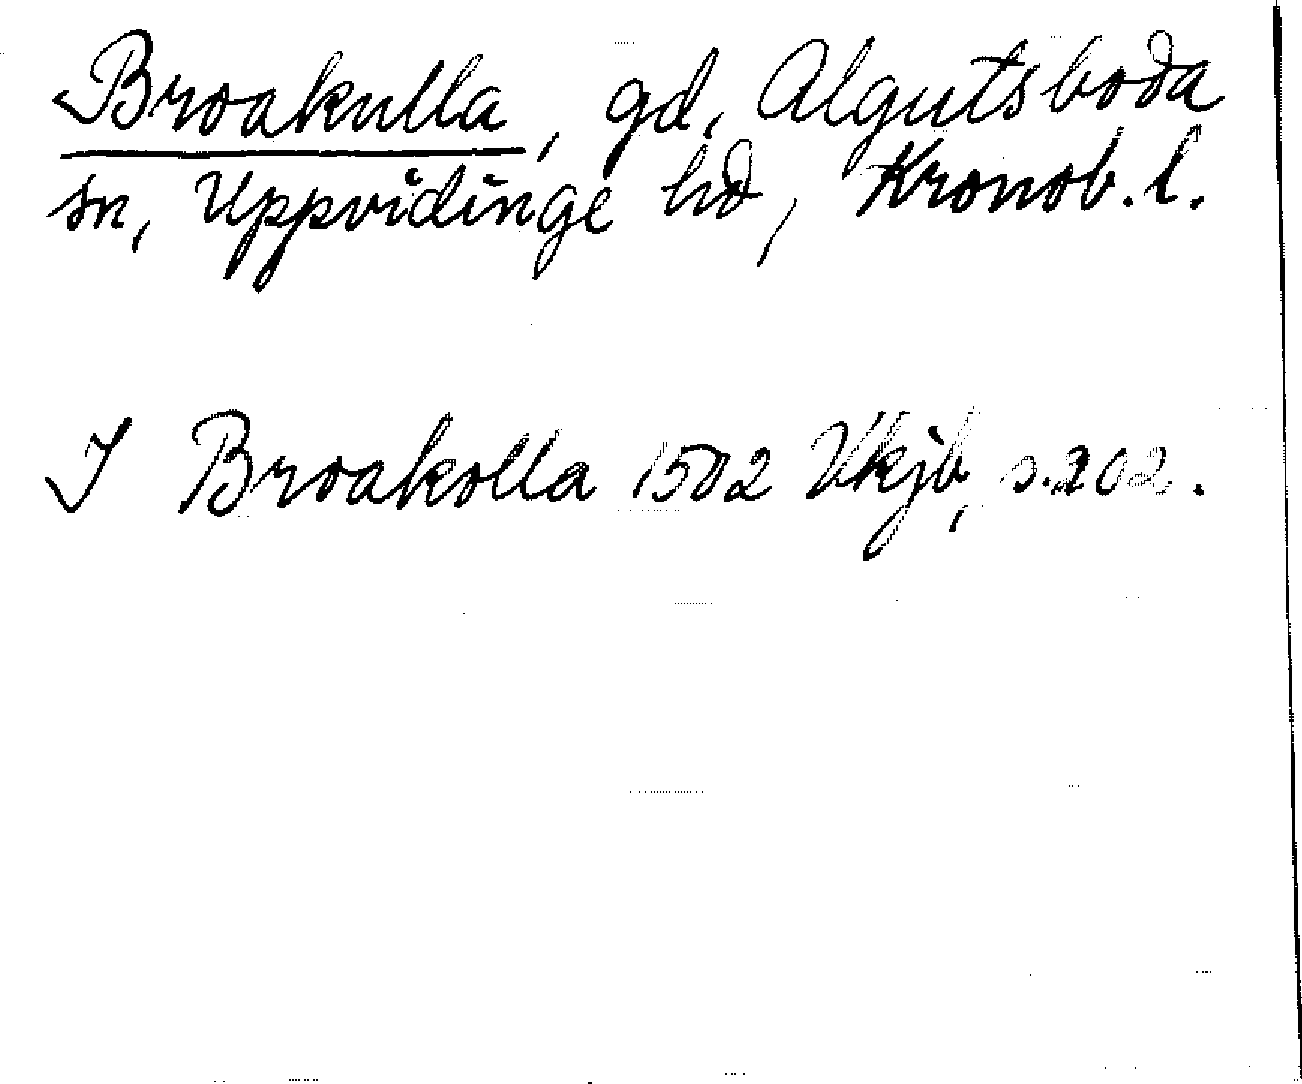 Broakulla, gd, Algutsboda
sn, Uppvidinge hd, Kronob. l.
I Broakolla 1502 Vkjb, s. 202.